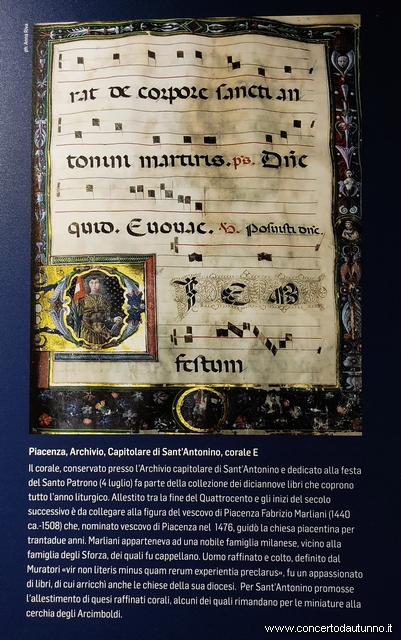 ph. Anna Riva
rat de corpore sancti an
tonini martiris. ps. Dñe
quid. Euouae. V. Posuisti dñe.
F E B
festum
Piacenza, Archivio, Capitolare di Sant'Antonino, corale E
Il corale, conservato presso l'Archivio capitolare di Sant'Antonino e dedicato alla festa
del Santo Patrono (4 luglio) fa parte della collezione dei diciannove libri che coprono
tutto l'anno liturgico. Allestito tra la fine del Quattrocento e gli inizi del secolo
successivo è da collegare alla figura del vescovo di Piacenza Fabrizio Marliani (1440
ca.-1508) che, nominato vescovo di Piacenza nel 1476, guidò la chiesa piacentina per
trantadue anni. Marliani apparteneva ad una nobile famiglia milanese, vicino alla
famiglia degli Sforza, dei quali fu cappellano. Uomo raffinato e colto, definito dal
Muratori «vir non literis minus quam rerum experientia preclarus», fu un appassionato
di libri, di cui arricchì anche le chiese della sua diocesi. Per Sant'Antonino promosse
l'allestimento di quesi raffinati corali, alcuni dei quali rimandano per le miniature alla
cerchia degli Arcimboldi.
www.concertodautunno.it